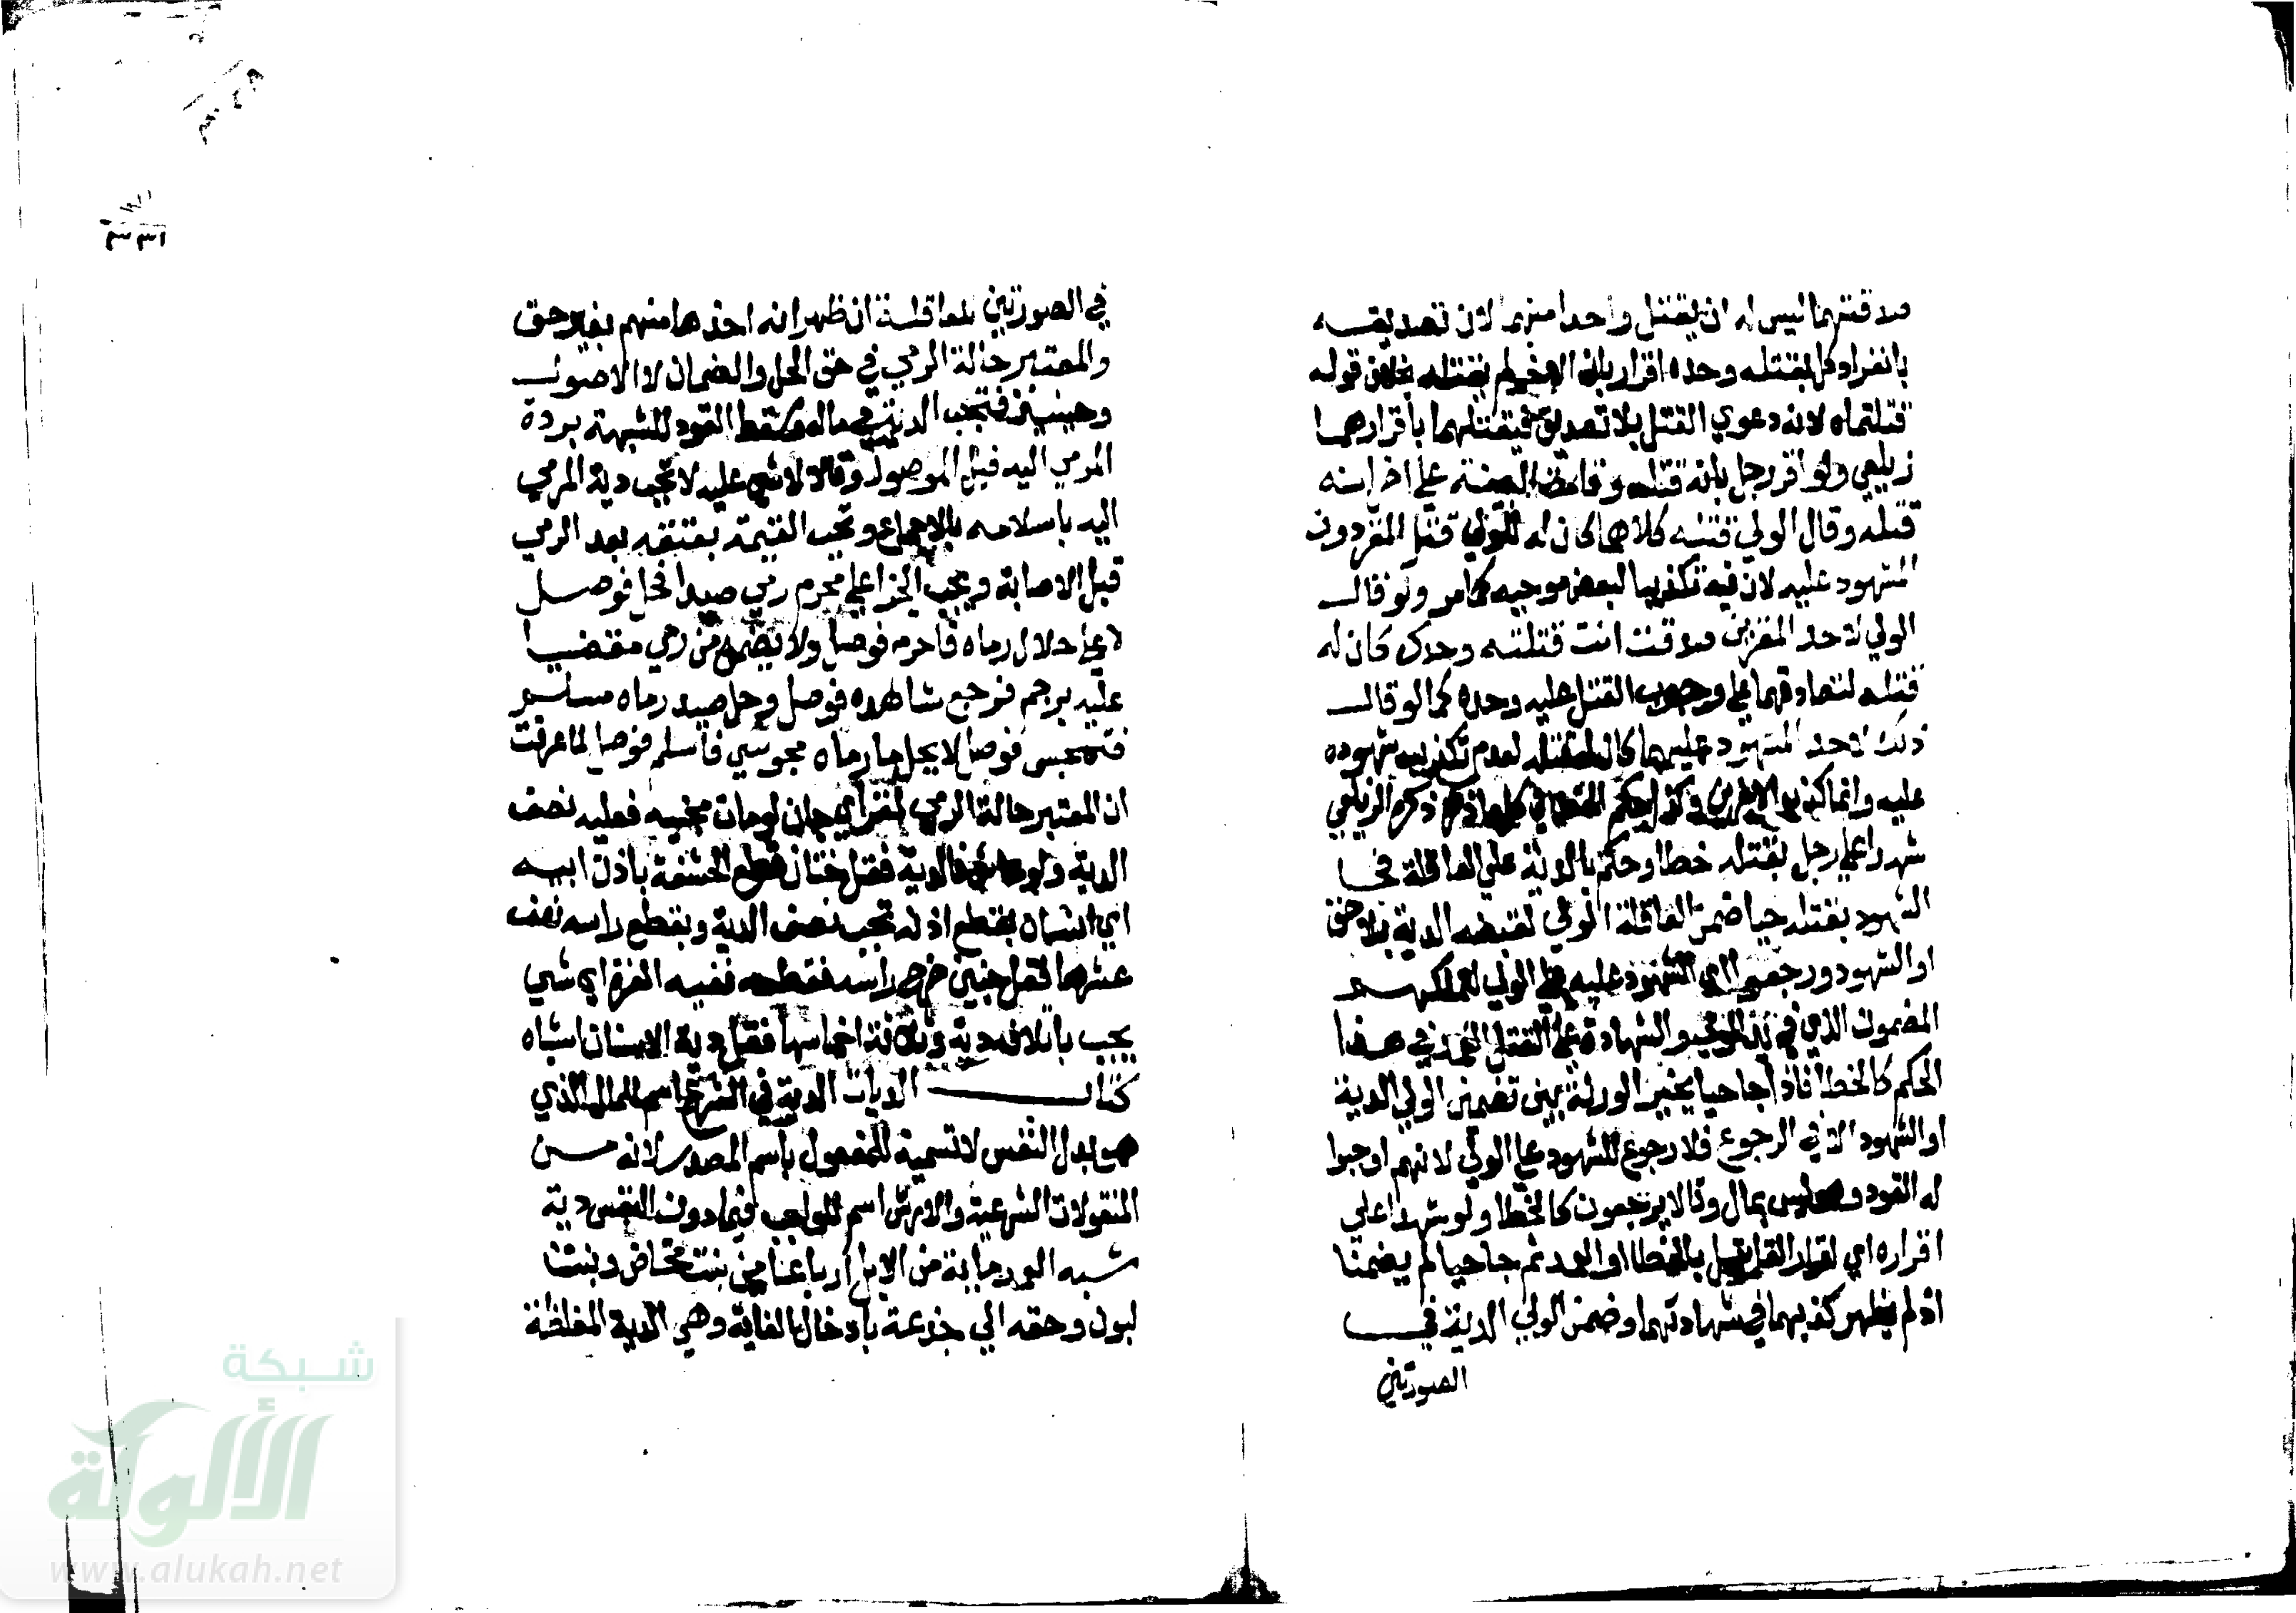 صدقتهما ليس له ان يقتل واحدا منهما لان تصديقه
بانفراد كل بقتله وحده اقرار بان الاخر لم يقتله بخلاف قوله
قتلتماه لانه دعوي القتل بلا تصديق فيقتلهما باقرارهما
زيلعي ولو اقر رجل بانه قتله وقامت البينة علي اخر انه
قتله وقال الولي قتله كلاهما كان له للولي قتل المقر دون
المشهود عليه لان فيه تكذيبا لبعض موجبه كما مر ولو قال
الولي لاحد المقرين صدقت انت قتلته وحدك كان له
قتله لتصادقهما علي وجوب القتل عليه وحده كما لو قال
ذلك لاحد المشهود عليهما كان له قتله لعدم تكذيب شهوده
عليه وانما كذب الاخرين وكذا حكم الخطا في كل ما ذكر ذكره الزيلعي
شهدا علي رجل بقتله خطا وحكم بالدية علي العاقلة فجا
المشهود بقتله حيا ضمن العاقلة الولي لقبضه الدية بلا حق
او الشهود ورجعوا اي الشهود عليه علي الولي لتملكهم
المضمون الذي في يد الولي والشهادة علي القتل العمد في هذا
الحكم كالخطا فاذا جا حيا يخير الورثة بين تضمين الولي الدية
او الشهود الا في الرجوع فلا رجوع للشهود علي الولي لانهم اوجبوا
له القود وهو ليس بمال وقالا يرجعون كالخطا ولو شهدا علي
اقراره اي اقرار القاتل بالخطا او العمد ثم جا حيا لم يضمنا
اذ لم يظهر كذبهما في شهادتهما وضمن الولي الدية في
الصورتين
في الصورتين للعاقلة ان ظهر انه اخذها منهم بغير حق
والمعتبر حالة الرمي في حق الحل والضمان لا الاصول
وحينئذ فتجب الدية في ماله وسقط القود للشبهة بردة
المرمي اليه قبل الوصول وقالا لا شي عليه لا تجب دية المرمي
اليه باسلامه بالاجماع وتجب القيمة بعتقه بعد الرمي
قبل الاصابة ويجب الجزا علي محرم رمي صيدا فحل فوصل
لا علي حلال رماه فاحرم فوصل ولا يضمن من رمي مقضيا
عليه برجم فرجع شاهده فوصل وحل صيد رماه مسلم
فتمجس فوصل لا يحل ما رماه مجوسي فاسلم فوصل لما عرفت
ان المعتبر حالة الرمي لغز اي جان لو مات مجنيه فعليه نصف
الدية ولو عاش فالدية فقل ختان قطع الحشفة باذن ابيه
اي انسان بقطع اذنه تجب نصف الدية وبقطع راسه نصف
عشرها فقل جنين خرج راسه فقطعه ففيه الغرة اي شي
يجب باتلافه دية وثلاثة اخماسها فقل دية الاسنان اشباه
كتاب الديات الدية في الشرع اسم للمال الذي
هو بدل النفس لا تسمية للمفعول باسم المصدر لانه من
المنقولات الشرعية والارش اسم للواجب فيما دون النفس دية
شبه العمد ماية من الابل ارباعا من بنت مخاض وبنت
لبون وحقه الي جذعة بادخال الغاية وهي الدية المغلظة
شبكة
الألوكة
www.alukah.net